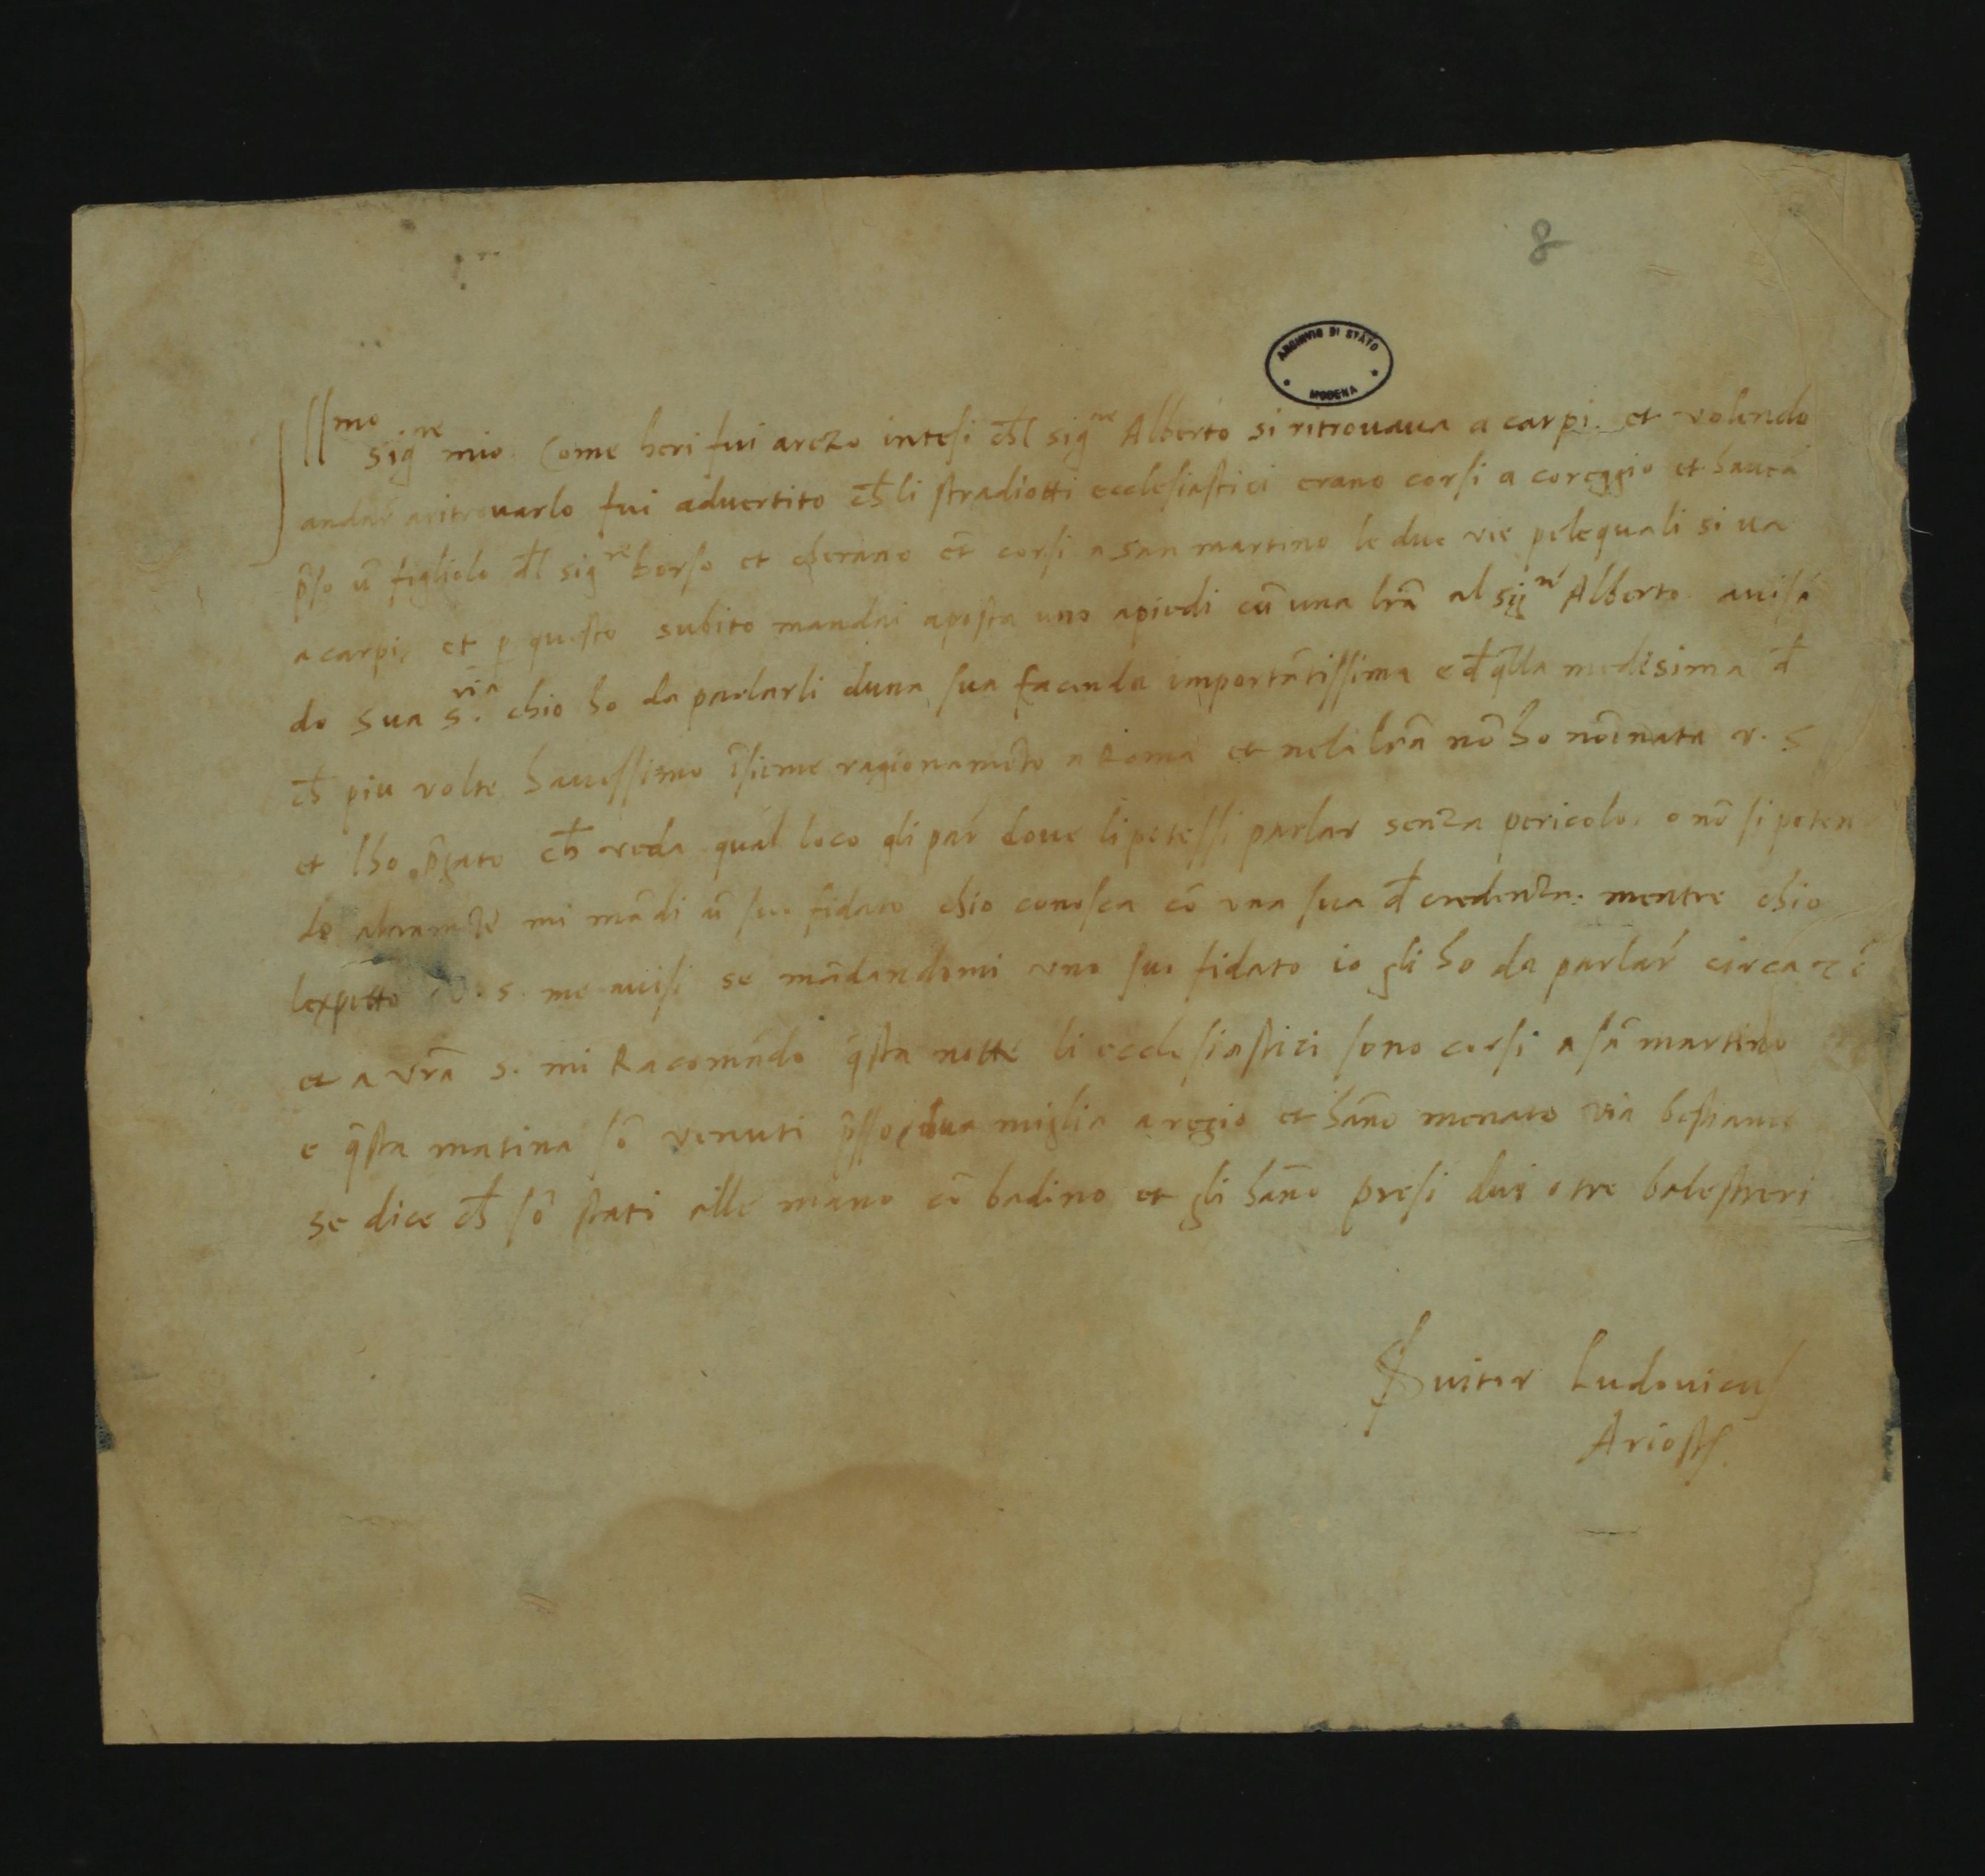 8
ARCHIVIO DI STATO
MODENA
Ill^mo sig^re mio. Come heri fui arezo intesi ch̄l sig^re Alberto si ritrouaua a carpi. et volendo
andar aritrouarlo fui aduertito ch̄ li stradiotti ecclesiastici erano corsi a coreggio et haueã
p̄so ũ figliolo d̄l sig^re borso et cherano et̃ corsi a san martino le due vie pele quali si ua
a carpi, et p questo subito mandai aposta uno apiedi cũ una lr̃a al sig^re Alberto avisã
do sua s.^ria chio ho da parlarli duna sua facenda importãtissima e d̄ q̃lla medesima d̄
ch̄ piu volte hauessimo ĩsieme ragionamẽto a Roma et nela lr̃a nõ ho noĩnata v. s
et lho p̄gato ch̄ veda qual loco gli par doue li potessi parlar senza pericolo, o nõ si poten
do mi mãdi ũ suo fidato chio conosca cõ vna sua d̄ credenza: mentre chio
lexpetto v. s. me auisi se mãdandomi vno suo fidato io gli ho da parlar circa
et a vr̃a s. mi Racomãdo q̃sta notte li ecclesiastici sono corsi a sã martino
e q̃sta matina sõ venuti p̄sso dua miglia a regio et hãno menato via bestiame
se dice ch̄ sõ stati alle mano cõ badino et gli hãno presi dui o tre balestreri
Suitor Ludouicus
Ariostus